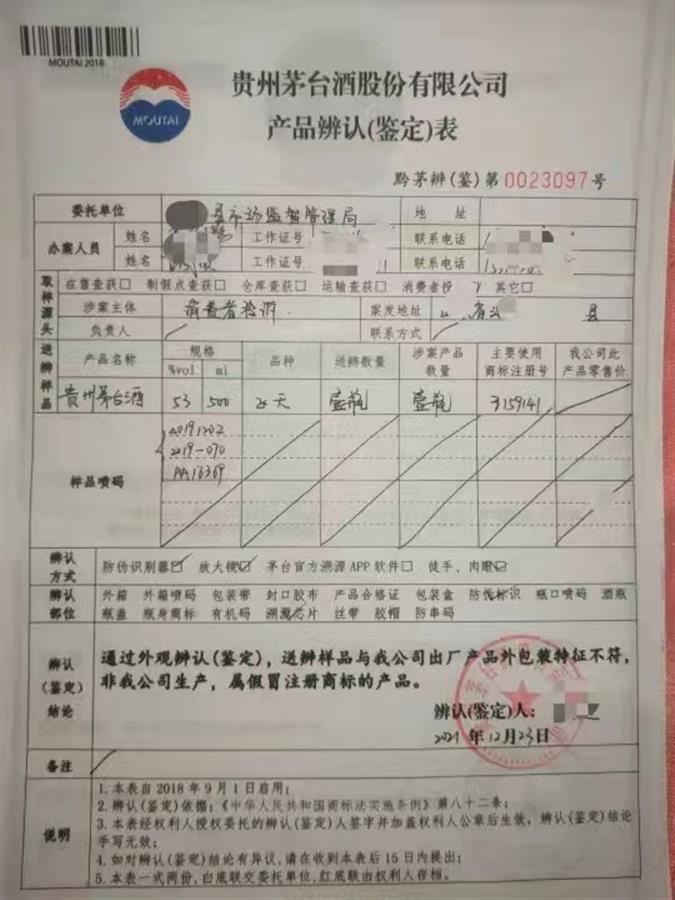 MOUTAI 2018
MOUTAI
贵州茅台酒股份有限公司
产品辨认(鉴定)表
黔茅辨(鉴)第0023097号
委托单位 县市场监督管理局 地 址
办案人员 姓名 工作证号 联系电话
姓名 工作证号 联系电话
取样源头 在售查获□ 制假点查获□ 仓库查获□ 运输查获□ 消费者投 其它□
涉案主体 消费者检测 案发地址 省 县
负责人 联系方式
送辨样品 产品名称 规格 %vol ml 品种 送辨数量 涉案产品数量 主要使用商标注册号 我公司此产品零售价
贵州茅台酒 53 500 飞天 壹瓶 壹瓶 3159141
样品喷码 20191202
2019-070
AA16369
辨认方式 防伪识别器☑ 放大镜☑ 茅台官方溯源APP软件□ 徒手、肉眼☑
辨认部位 外箱 外箱喷码 包装带 封口胶布 产品合格证 包装盒 防伪标识 瓶口喷码 酒瓶
瓶盖 瓶身商标 有机码 溯源芯片 丝带 胶帽 防串码
辨认(鉴定)结论 通过外观辨认(鉴定)，送辨样品与我公司出厂产品外包装特征不符，
非我公司生产，属假冒注册商标的产品。
辨认(鉴定)人：
2021年12月23日
备注
说明 1.本表自2018年9月1日启用；
2.辨认(鉴定)依据：《中华人民共和国商标法实施条例》第八十二条；
3.本表经权利人授权委托的辨认(鉴定)人签字并加盖权利人公章后生效，辨认(鉴定)结论
手写无效；
4.如对辨认(鉴定)结论有异议，请在收到本表后15日内提出；
5.本表一式两份，白底联交委托单位，红底联由权利人存档。